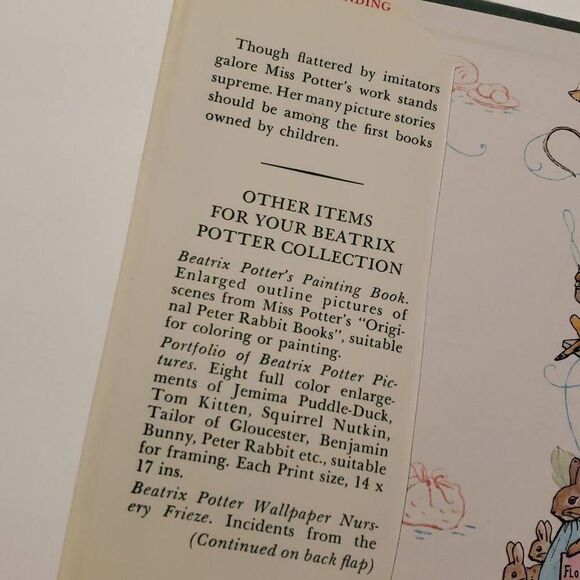 NDING
Though flattered by imitators
galore Miss Potter's work stands
supreme. Her many picture stories
should be among the first books
owned by children.
OTHER ITEMS
FOR YOUR BEATRIX
POTTER COLLECTION
Beatrix Potter's Painting Book.
Enlarged outline pictures of
scenes from Miss Potter's "Origi-
nal Peter Rabbit Books", suitable
for coloring or painting.
Portfolio of Beatrix Potter Pic-
tures. Eight full color enlarge-
ments of Jemima Puddle-Duck,
Tom Kitten, Squirrel Nutkin,
Tailor of Gloucester, Benjamin
Bunny, Peter Rabbit etc., suitable
for framing. Each Print size, 14 x
17 ins.
Beatrix Potter Wallpaper Nurs-
ery Frieze. Incidents from the
(Continued on back flap)
FLO